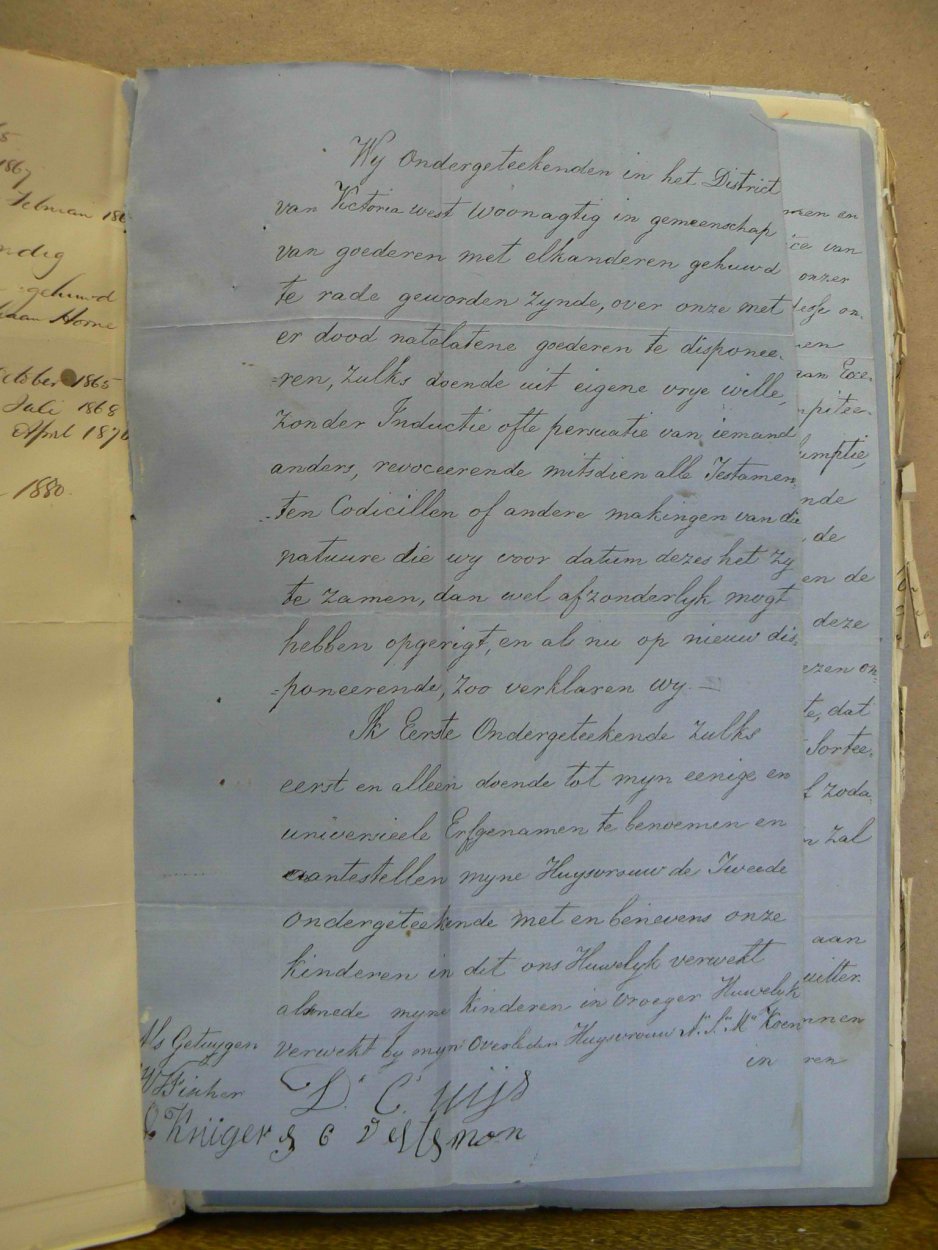 65
1867
Februari 186
ndig
gehuwd
Horne
October 1865
Juli 1868
April 1870
1880.
Wy Ondergeteekenden in het District
van Victoria west Woonagtig in gemeenschap
van goederen met elkanderen gehuwd
te rade geworden Zynde, over onze met
er dood natelatene goederen te disponee-
=ren, Zulks doende uit eigene vrye wille,
Zonder Inductie ofte persuatie van iemand
anders, revoceerende mitsdien alle Testamen-
=ten Codicillen of andere makingen van die
natuure die wy voor datum dezes het Zy
te Zamen, dan wel afzonderlyk mogt
hebben opgerigt, en als nu op nieuw dis-
=poneerende, Zoo verklaren wy. —
Ik Eerste Ondergeteekende Zulks
eerst en alleen doende tot myn eenige en
universeele Erfgenamen te benoemen en
aantestellen myne Huysvrouw de Tweede
Ondergeteekende met en benevens onze
kinderen in dit ons Huwelyk verwekt
alsmede myne kinderen in vroeger Huwelyk
verwekt by myn Overleden Huysvrouw
in
Als Getuygen
W Fischer
Krüger
D. C.
men en
ice van
onzer
en
van Exce-
umptie,
nde
de
en de
deze
ezen on-
te, dat
Sortee-
f Zoda
n Zal
aan
uitter
nnen
ren